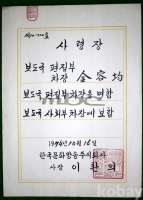 사령장
보도국 편집부
차장 金容均
보도국 편집부차장을 면함
보도국 사회부 차장에 보함
1976년 10월 16일
한국문화방송주식회사
사장 이환의
kobay